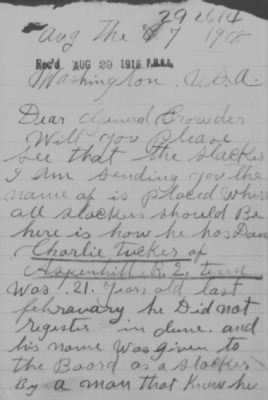 292614
Aug The 7 1918
Rec'd AUG 20 1918 P.M.G.O.
Washington. U.S.A.
Dear General Crowder
Will you please
see that the slacker
I am sending you the
name of is placed where
all slackers should Be
here is how he has Done
Charlie Tucker of
Aspenhill R. 2. Tenn
Was .21. Years old last
februavary he Did not
register in June. and
his name Was given to
the Board as a slacker
By a man that Knew he